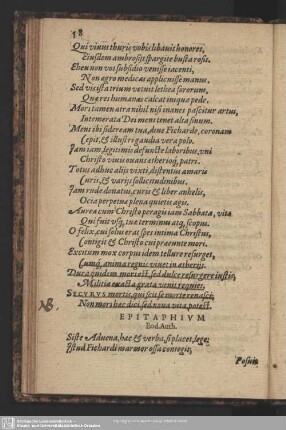 18
Qui viuus thuris vobis libauit honores,
Eiusdem ambrosijs spargite busta rosis.
Eheu non vos subsidio venisse iacenti,
Non agro medicas applicuisse manus.
Sed vis ista trium vetuit lethea sororum,
Quæ res humanas calcat iniqua pede.
Mors tamen atra nihil nisi inanes pascitur artus,
Intemerata Dei mens tenet alta sinum.
Mens ibi sideream tua, diue Ficharde, coronam
Cepit, & illustri gaudia vera polo.
Iam iam, legitimis defuncte laboribus, vni
Christo viuis ouans ætherioq, patri.
Totus adhuc alijs vixti, distentus amaris
Curis, & varijs sollicitudinibus.
Iam rude donatus, curis & liber anhelis,
Ocia perpetua plena quietis agis.
Aurea cum Christo peragis iam Sabbata, vitæ
Qui fuit vsq, tuæ terminus atq, scopus.
O felix, cui solus erat spes intima Christus,
Contigit & Christo cui præeunte mori.
Excitum mox corpus idem tellure resurget,
Cumq, anima regnis viuet in ætherijs.
Dura quidem mors est, sed dulce resurgere iustis,
Militia exacta grata venit requies.
SECVRVS mortis, qui scit se morte renasci:
Non mors hæc dici, sed noua vita potest.
NB
EPITAPHIVM
Eod. Auth.
Siste Aduena, hæc & verba, si placet, lege:
Istud Fichardi marmor ossa contegit,
Posuit